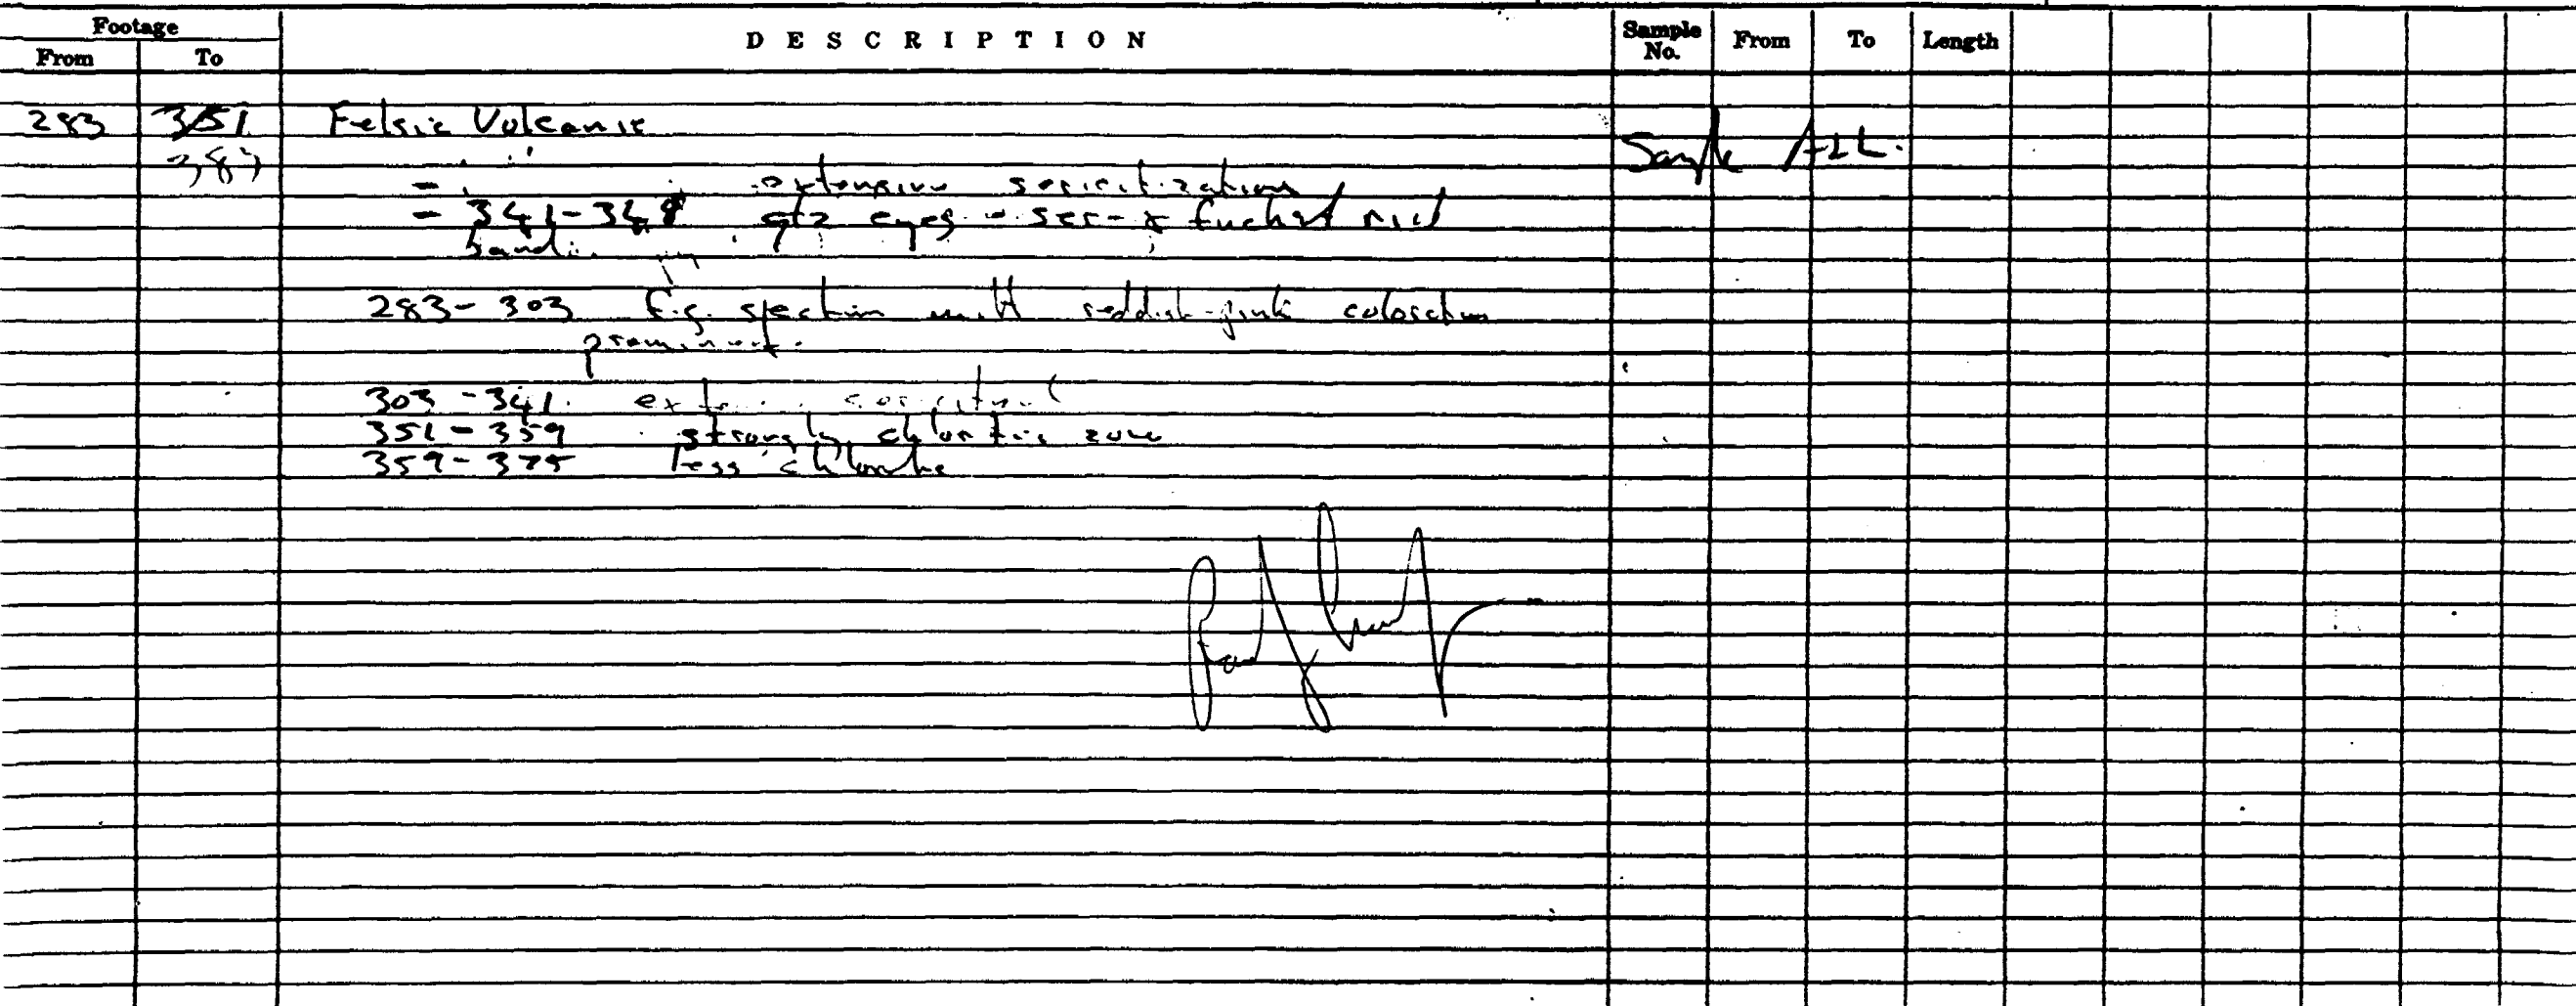 Footage
From To DESCRIPTION Sample No. From To Length
283 351 Felsic Volcanic
Sample ALL.
- extensive sericitization
- 341-348 qtz eyes - ser- & fuchsit rich
283-303 f.g. section with reddish-pink coloration
prominent.
303-341
351-359 strongly chloritic zone
359-375 less chlorite